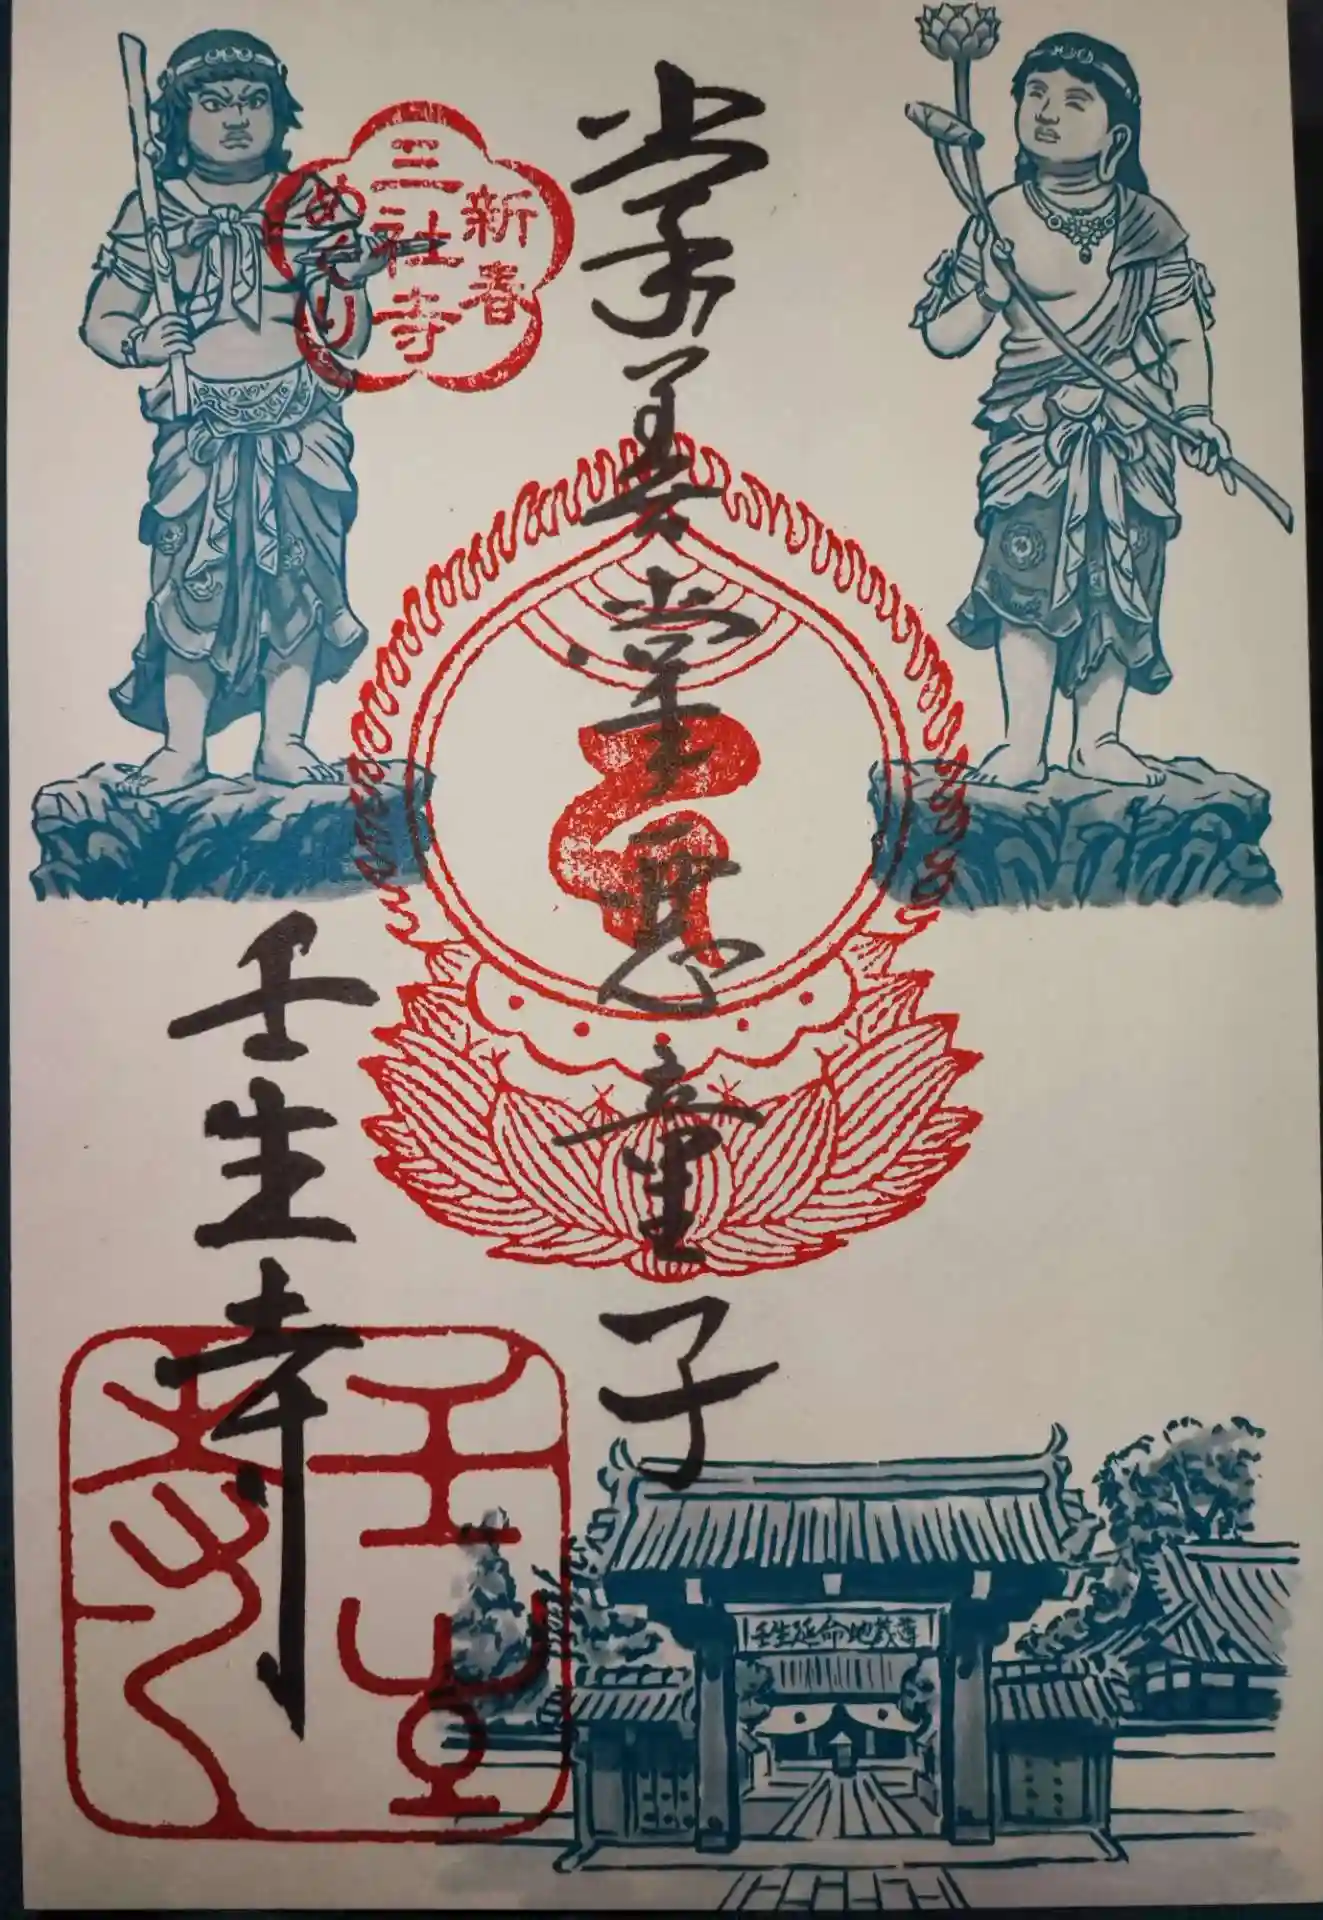 新春
三社寺
めぐり
掌善掌悪童子
壬生寺
壬生
寺
壬生延命地蔵尊